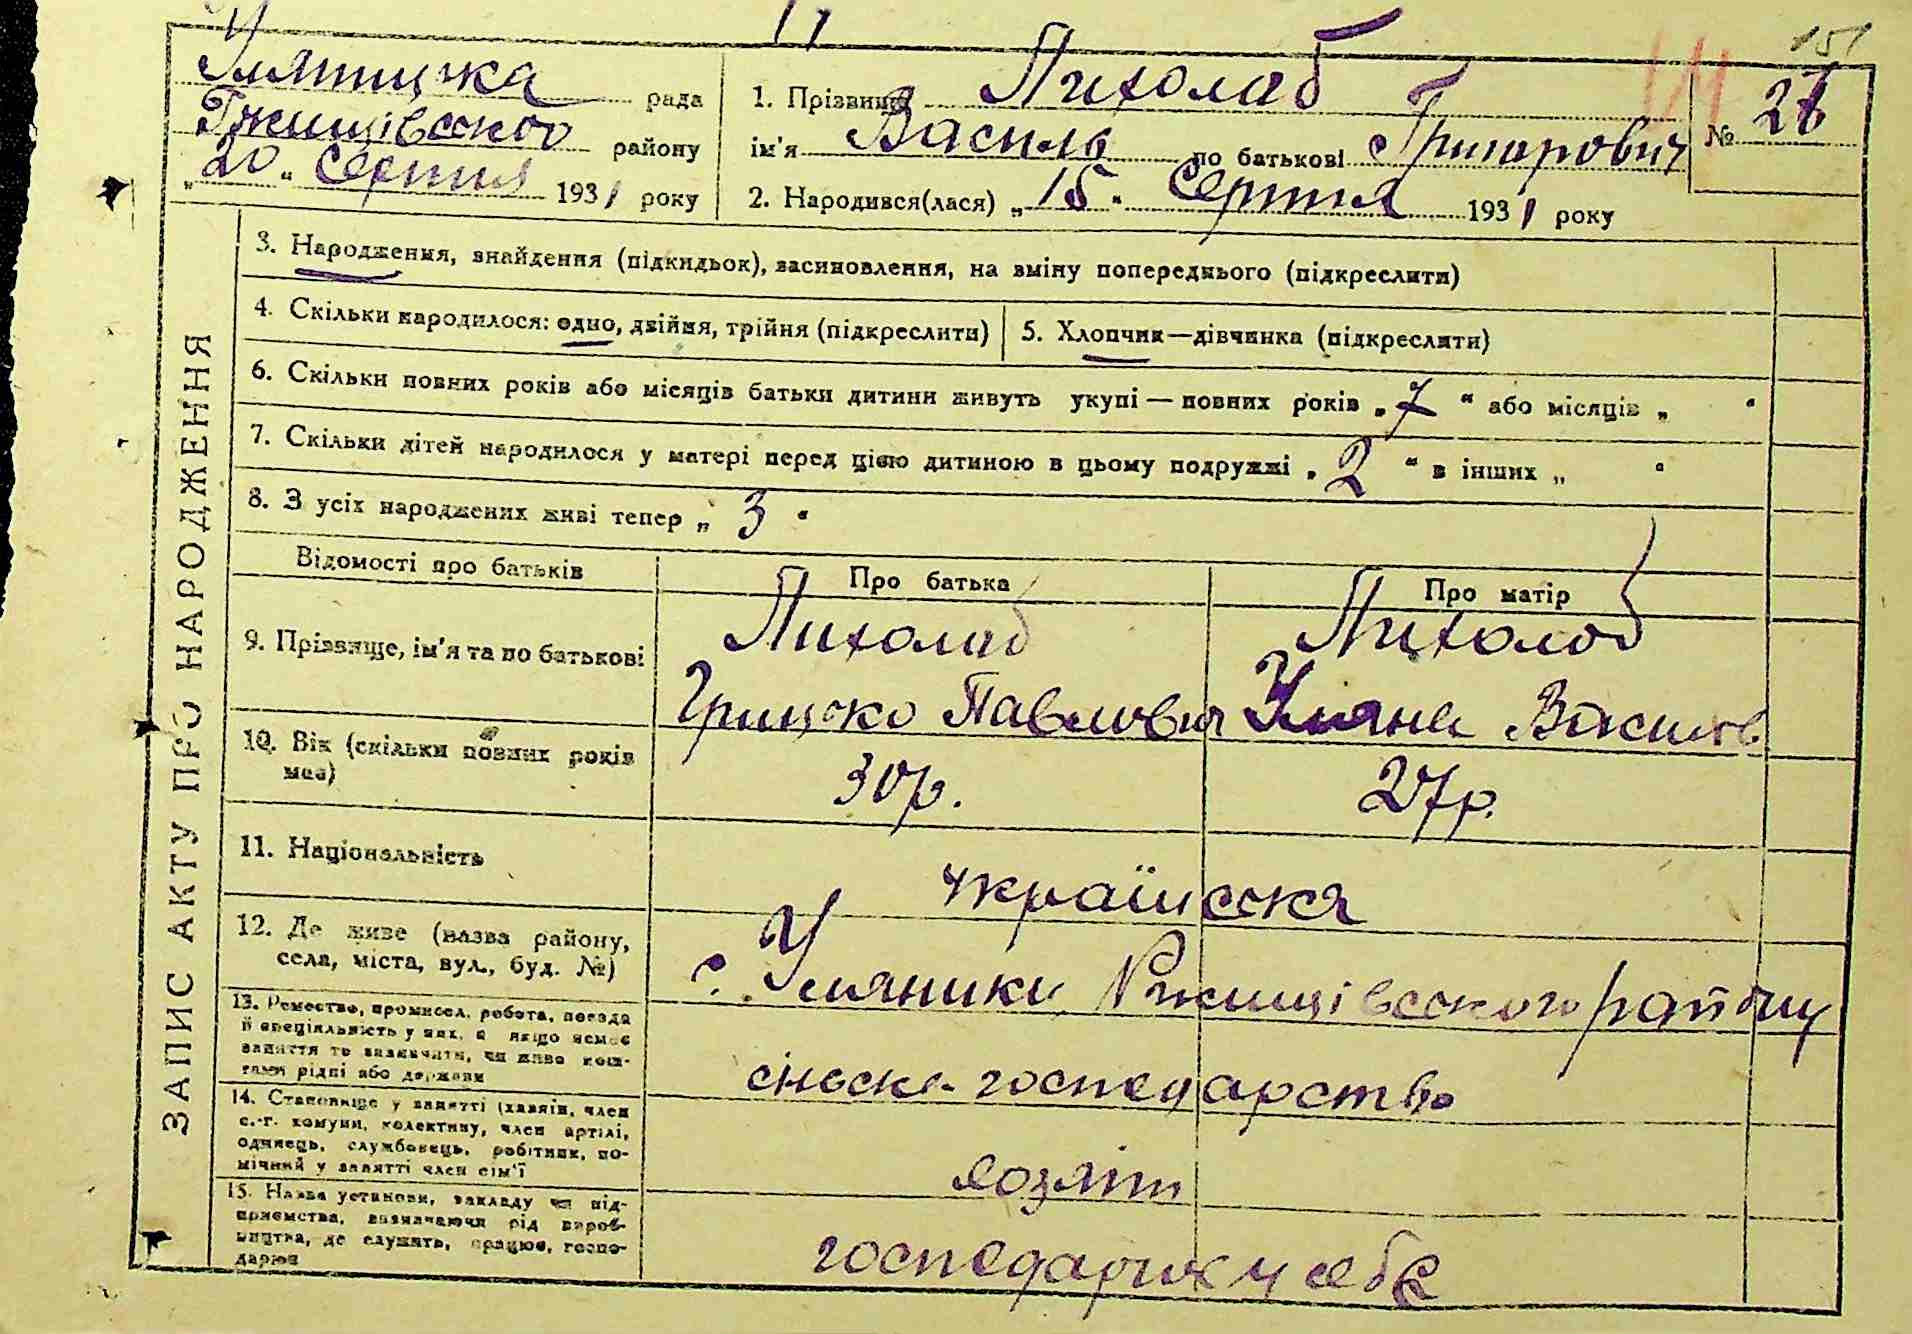 151
Уляницка рада
Ржищівсского району
„20“ Серпня 1931 року
1. Прізвище Лихолаб
ім'я Василь по батькові Григорович
№ 26
2. Народився(лася) „15“ Серпня 1931 року
ЗАПИС АКТУ ПРО НАРОДЖЕННЯ
3. Народження, знайдення (підкидьок), васиновлення, на вміну попереднього (підкреслити)
4. Скільки народилося: одно, двійня, трійня (підкреслити)
5. Хлопчик—дівчинка (підкреслити)
6. Скільки повних років або місяців батьки дитини живуть укупі — повних років „7“ або місяців „ “
7. Скільки дітей народилося у матері перед цією дитиною в цьому подружжі „2“ в інших „ “
8. З усіх народжених живі тепер „3“
Відомості про батьків
Про батька
Про матір
9. Прізвище, ім'я та по батькові
Лихолаб
Грицько Павлович
Лихолоб
Уляна Василів
10. Вік (скільки повних років має)
30р.
27р.
11. Національність
українсска
12. Де живе (назва району,
села, міста, вул., буд. №)
с. Уляники Ржищівсского району
13. Ремество, промисел, робота, посада
й спеціяльність у них, а якщо немає
заняття то зазначити, чи живе кош-
тами рідні або держави
сільске-господарство
14. Становище у занятті (хазяїн, член
с.-г. комуни, колективу, член артілі,
одинець, службовець, робітник, по-
мічний у занятті член сім'ї
хозяїн
15. Назва установи, закладу чи під-
приємства, визначаючи рід вироб-
ництва, де служить, працює, госпо-
дарює
господарює у себе